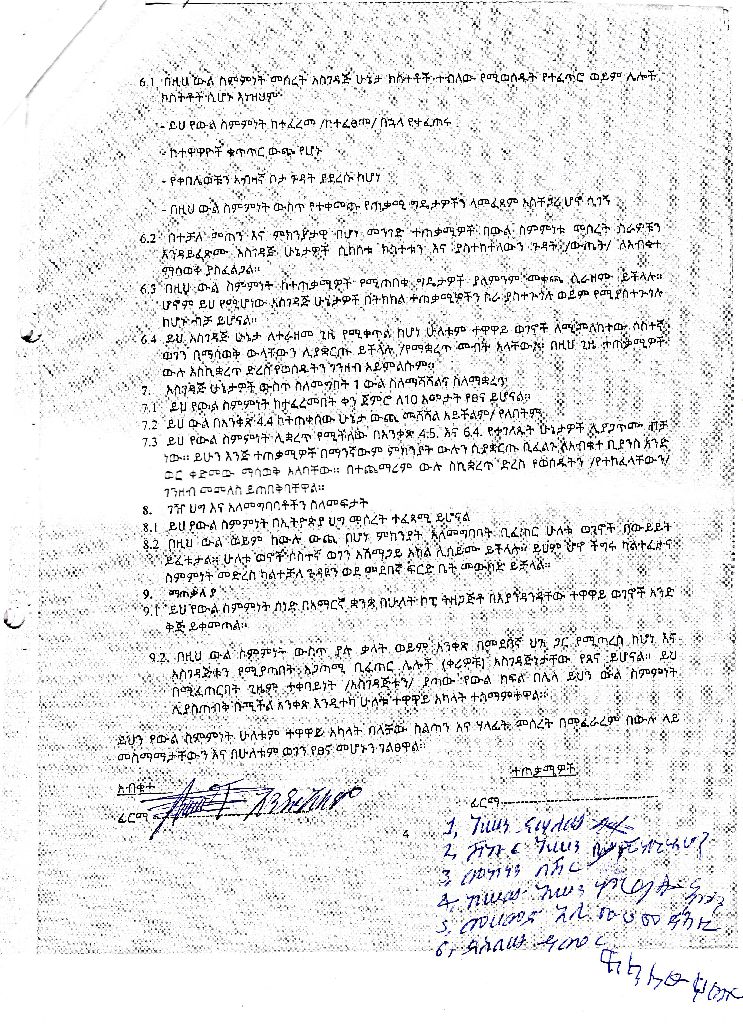 6.1 በዚህ ውል ስምምነት መሰረት አስገዳጅ ሁኔታ ክስተቶች ተብለው የሚወሰዱት የተፈጥሮ ወይም ሌሎች
ክስተቶች ሲሆኑ እነዚህም
- ይህ የውል ስምምነት ከተፈረመ /ከተፈፀመ/ በኋላ የተፈጠሩ
- ከተዋዋዮች ቁጥጥር ውጭ የሆኑ
- የቀበሌዎቹን አብዛኛ ቦታ ጉዳት ያደረሱ ከሆነ
- በዚህ ውል ስምምነት ውስጥ የተቀመጡ የጠቃሚ ግዴታዎችን ለመፈጸም አስቸጋሪ ሆኖ ሲገኝ
6.2 በተቻለ መጠን እና ምክንያታዊ በሆነ መንገድ ተጠቃሚዎች በውል ስምምነቱ መሰረት ስራዎቹን
እንዳይፈጽሙ አስገዳጅ ሁኔታዎች ሲከሰቱ ክስተቱን እና ያስተከተለውን ጉዳት /ውጤት/ ለአብቁተ
ማሳወቅ ያስፈልጋል።
6.3 በዚህ ውል ስምምነት ከተጠቃሚዎች የሚጠበቁ ግዴታዎች ያለምንም መቀጫ ሊራዘሙ ይችላሉ።
ሆኖም ይህ የሚሆነው አስገዳጅ ሁኔታዎች በትክክል ተጠቃሚዎችን ስራ ያስተጓጎሉ ወይም የሚያስተጓጎሉ
ከሆኑ ብቻ ይሆናል።
6.4 ይህ አስገዳጅ ሁኔታ ለተራዘመ ጊዜ የሚቀጥል ከሆነ ሁለቱም ተዋዋይ ወገኖች ለሚመለከተው ሶስተኛ
ወገን በማሳወቅ ውላቸውን ሊያቋርጡ ይችላሉ /የማቋረጥ መብት አላቸው/። በዚህ ጊዜ ተጠቃሚዎች
ውሉ እስኪቋረጥ ድረስ የወሰዱትን ገንዘብ አይመልሱም።
7. አስገዳጅ ሁኔታዎች ውስጥ ስለመግባት 1 ውል ስለማሻሻልና ስለማቋረጥ
7.1 ይህ የውል ስምምነት ከተፈረመበት ቀን ጀምሮ ለ10 አመታት የፀና ይሆናል።
7.2 ይህ ውል በአንቀጽ 4.4 ከተጠቀሰው ሁኔታ ውጪ መሻሻል አይችልም/ የለበትም
7.3 ይህ የውል ስምምነት ሊቋረጥ የሚችለው በአንቀጽ 4.5. እና 6.4. የተገለጹት ሁኔታዎች ሲያጋጥሙ ብቻ
ነው። ይሁን እንጅ ተጠቃሚዎች በማንኛውም ምክንያት ውሉን ሲያቋርጡ ቢፈልጉ ለአብቁተ ቢያንስ አንድ
ወር ቀድመው ማሳወቅ አለባቸው። በተጨማሪም ውሉ ስኪቋረጥ ድረስ የወሰዱትን /የተከፈላቸውን/
ገንዘብ መመለስ ይጠበቅባቸዋል።
8. ገዥ ህግ እና አለመግባባቶችን ስለመፍታት
8.1 ይህ የውል ስምምነት በኢትዮጵያ ህግ መሰረት ተፈጻሚ ይሆናል
8.2 በዚህ ውል ወይም ከውሉ ውጪ በሆነ ምክንያት አለመግባባት ቢፈጠር ሁለቱ ወገኖች በውይይት
ይፈቱታል። ሁለቱ ወገኖች ሶስተኛ ወገን አሸማጋይ አካል ሊሰይሙ ይችላሉ። ይህም ሆኖ ችግሩ ካልተፈታና
ስምምነት መድረስ ካልተቻለ ጉዳዩን ወደ መደበኛ ፍርድ ቤት መውሰድ ይቻላል።
9. ማጠቃለያ
9.1 ይህ የውል ስምምነት ሰነድ በአማርኛ ቋንቋ በሁለት ኮፒ ተዘጋጅቶ በእያንዳንዳቸው ተዋዋይ ወገኖች አንድ
ቅጅ ይቀመጣል።
9.2. በዚህ ውል ስምምነት ውስጥ ያሉ ቃላት ወይም አንቀጽ በመደበኛ ህጉ ጋር የሚጣረስ ከሆነ እና
አስገዳጅቱን የሚያጣበት አጋጣሚ ቢፈጠር ሌሎች (ቀሪዎቹ) አስገዳጅነታቸው የጸና ይሆናል። ይህ
በሚፈጠርበት ጊዜም ተቀባይነት /አስገዳጅቱን/ ያጣው የውል ክፍል በሌላ ይህን ውል ስምምነት
ሊያስጠብቅ በሚችል አንቀጽ እንዲተካ ሁለቱ ተዋዋይ አካላት ተስማምተዋል።
ይህን የውል ስምምነት ሁለቱም ተዋዋይ አካላት ባላቸው ስልጣን እና ሃላፊት መሰረት በማፈራረም በውሉ ላይ
መስማማታቸውን እና በሁለቱም ወገን የፀና መሆኑን ገልፀዋል።
አብቁተ
ተጠቃሚዎች
ፊርማ
ፊርማ
4
1,
2,
3,
4.
5,
6,